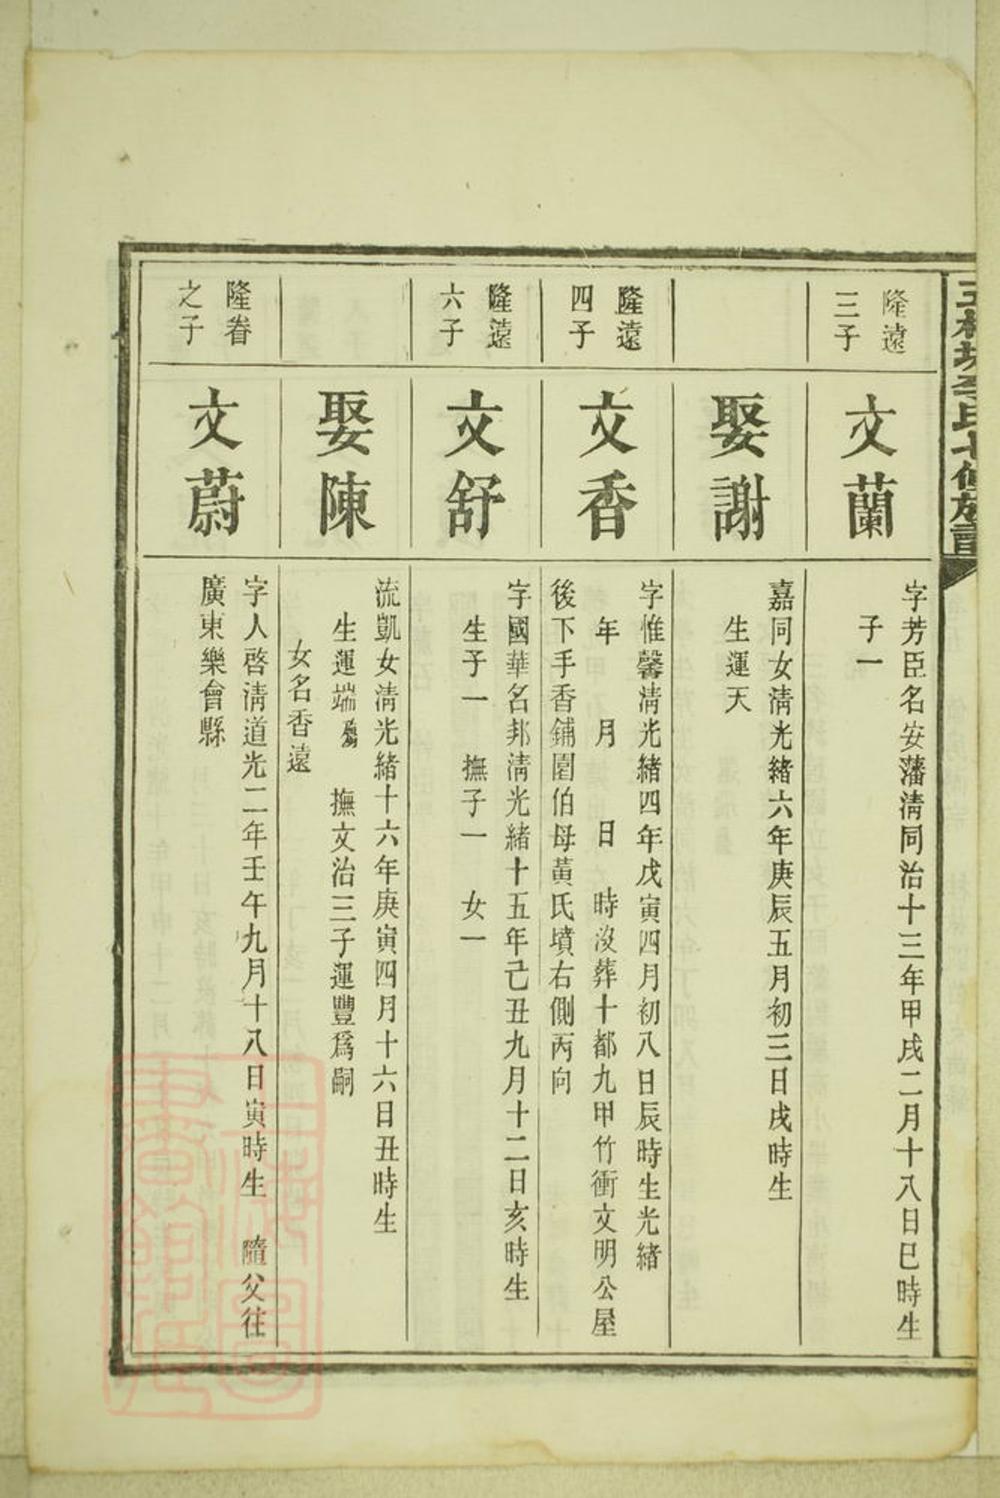 李氏七修族譜
隆遠
三子
文蘭
字芳臣名安藩淸同治十三年甲戌二月十八日巳時生
子一
娶謝
嘉同女淸光緒六年庚辰五月初三日戌時生
生運天
隆遠
四子
文香
字惟馨淸光緒四年戊寅四月初八日辰時生光緒
年 月 日 時沒葬十都九甲竹衝文明公屋
後下手香鋪園伯母黃氏墳右側丙向
隆遠
六子
文舒
字國華名邦淸光緒十五年己丑九月十二日亥時生
生子一 撫子一 女一
娶陳
流凱女淸光緒十六年庚寅四月十六日丑時生
生運端殤 撫文治三子運豐爲嗣
女名香遠
隆眷
之子
文蔚
字人啓淸道光二年壬午九月十八日寅時生 隨父往
廣東樂會縣